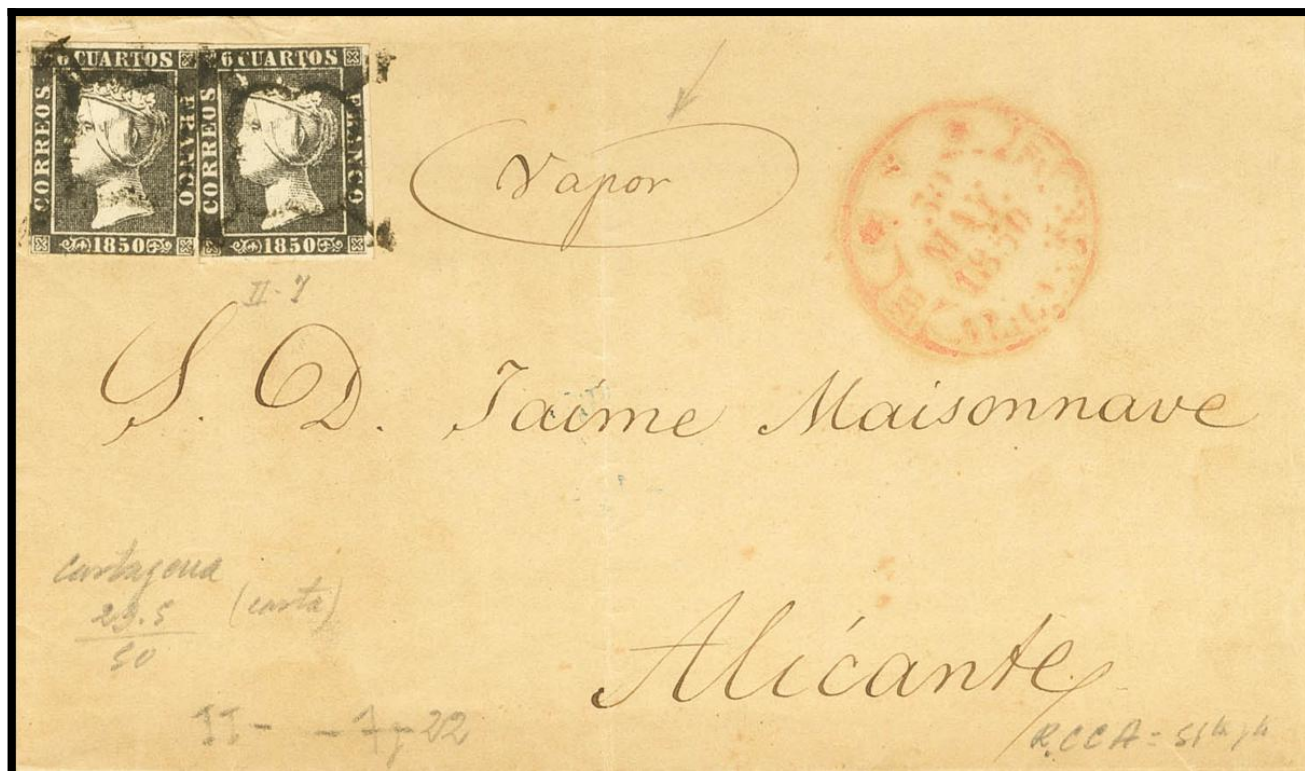 6 CUARTOS
CORREOS
FRANCO
1850
6 CUARTOS
CORREOS
FRANCO
1850
Vapor
30
MAY.
1850
II-7
S. D. Jaime Maisonnave
Cartagena
29.5
50
(carta)
Alicante